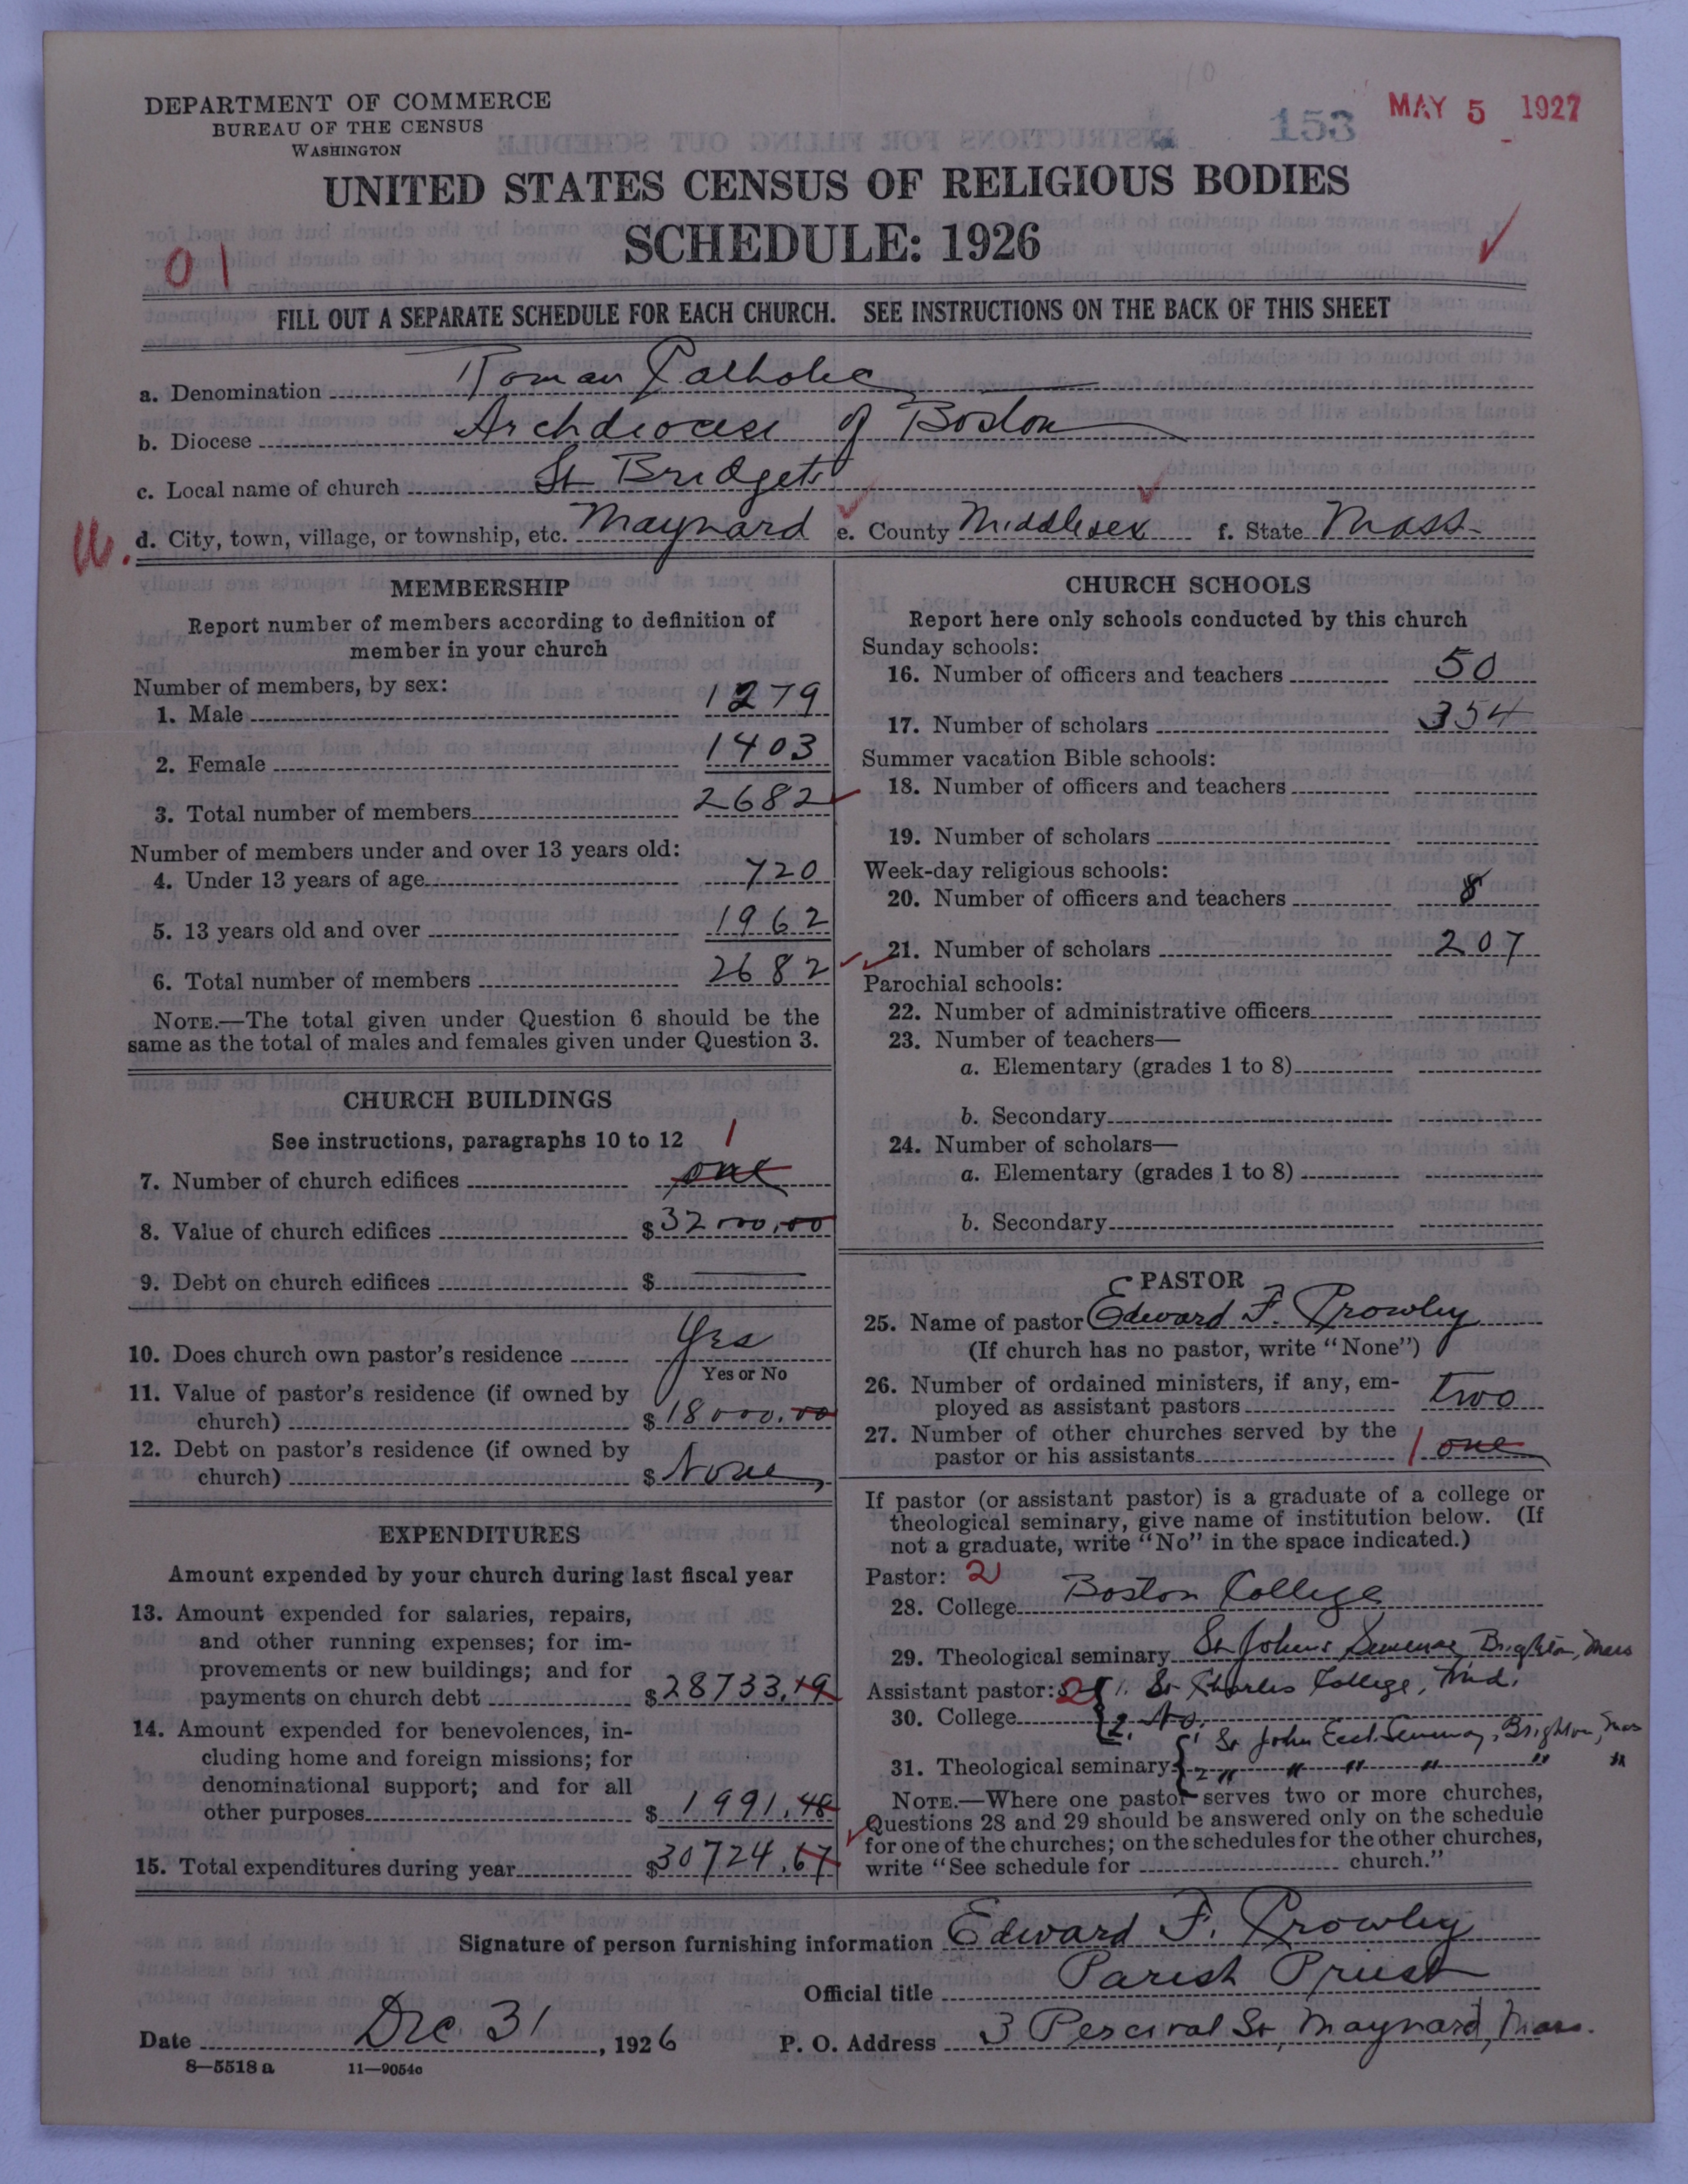 DEPARTMENT OF COMMERCE
BUREAU OF THE CENSUS
WASHINGTON
153 MAY 5 1927
UNITED STATES CENSUS OF RELIGIOUS BODIES
SCHEDULE: 1926
01
FILL OUT A SEPARATE SCHEDULE FOR EACH CHURCH. SEE INSTRUCTIONS ON THE BACK OF THIS SHEET
a. Denomination Roman Catholic
b. Diocese Archdiocese of Boston
c. Local name of church St Bridgets
d. City, town, village, or township, etc. Maynard e. County Middlesex f. State Mass.
MEMBERSHIP
Report number of members according to definition of
member in your church
Number of members, by sex:
1. Male 1279
2. Female 1403
3. Total number of members 2682
Number of members under and over 13 years old:
4. Under 13 years of age 720
5. 13 years old and over 1962
6. Total number of members 2682
NOTE.—The total given under Question 6 should be the
same as the total of males and females given under Question 3.
CHURCH BUILDINGS
See instructions, paragraphs 10 to 12 1
7. Number of church edifices one
8. Value of church edifices $32000.00
9. Debt on church edifices $
10. Does church own pastor's residence Yes
Yes or No
11. Value of pastor's residence (if owned by
church) $18000.00
12. Debt on pastor's residence (if owned by
church) $None
EXPENDITURES
Amount expended by your church during last fiscal year
13. Amount expended for salaries, repairs,
and other running expenses; for im-
provements or new buildings; and for
payments on church debt $28733.19
14. Amount expended for benevolences, in-
cluding home and foreign missions; for
denominational support; and for all
other purposes $1991.48
15. Total expenditures during year $30724.67
CHURCH SCHOOLS
Report here only schools conducted by this church
Sunday schools:
16. Number of officers and teachers 50
17. Number of scholars 354
Summer vacation Bible schools:
18. Number of officers and teachers
19. Number of scholars
Week-day religious schools:
20. Number of officers and teachers 8
21. Number of scholars 207
Parochial schools:
22. Number of administrative officers
23. Number of teachers—
a. Elementary (grades 1 to 8)
b. Secondary
24. Number of scholars—
a. Elementary (grades 1 to 8)
b. Secondary
PASTOR
25. Name of pastor Edward F. Crowley
(If church has no pastor, write "None")
26. Number of ordained ministers, if any, em-
ployed as assistant pastors two
27. Number of other churches served by the
pastor or his assistants 1 one
If pastor (or assistant pastor) is a graduate of a college or
theological seminary, give name of institution below. (If
not a graduate, write "No" in the space indicated.)
Pastor: 2
28. College Boston College
29. Theological seminary St Johns Seminary Brighton, Mass
Assistant pastor: 2 1. St Charles College, Md.
30. College 2. No.
1 St John Eccl. Seminary, Brighton, Mass
31. Theological seminary 2 " " " " " "
NOTE.—Where one pastor serves two or more churches,
Questions 28 and 29 should be answered only on the schedule
for one of the churches; on the schedules for the other churches,
write "See schedule for church."
Signature of person furnishing information Edward F. Crowley
Official title Parish Priest
Date Dec 31, 1926 P. O. Address 3 Percival St, Maynard, Mass.
8—5518 a 11—9054c